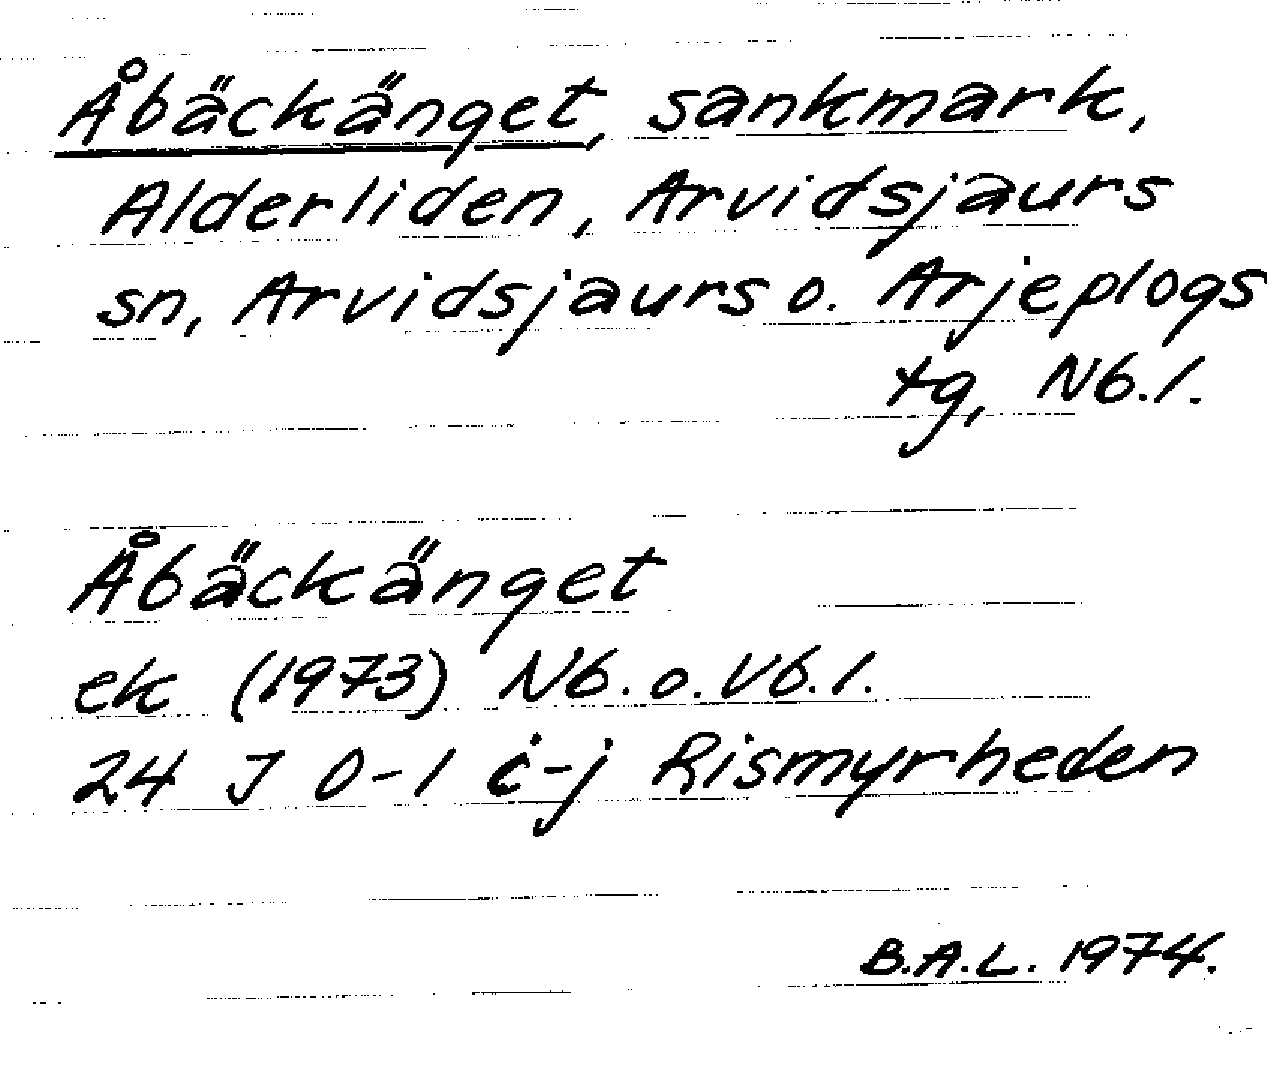 Åbäckänget, sankmark,
Alderliden, Arvidsjaurs
sn, Arvidsjaurs o. Arjeplogs
tg, Nb.l.
Åbäckänget
ek (1973) Nb. o. Vb.l.
24 J 0-1 i-j Rismyrheden
B.A.L. 1974.